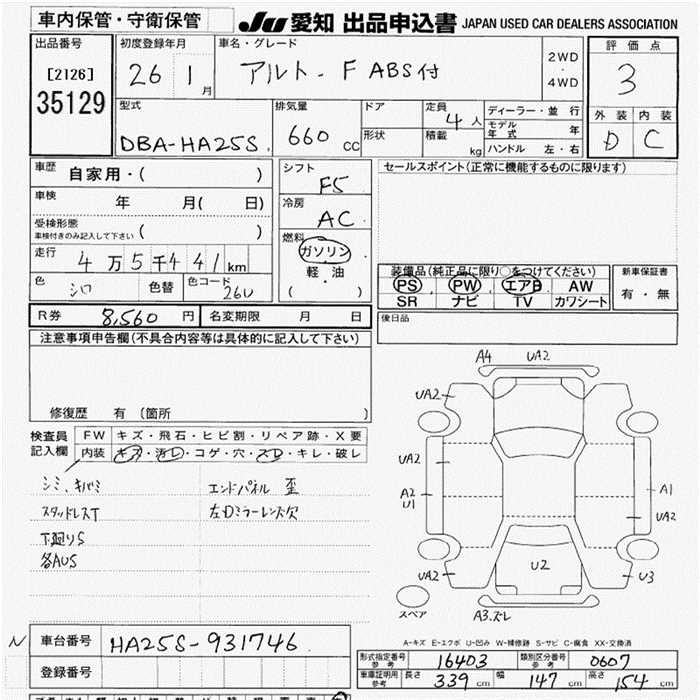 車内保管・守衛保管
JU 愛知 出品申込書 JAPAN USED CAR DEALERS ASSOCIATION
出品番号
[2126]
35129
初度登録年月
26 1月
車名・グレード
アルト - F ABS付
2WD
・
4WD
評価点
3
外装 内装
D C
型式
DBA-HA25S
排気量
660 CC
ドア
形状
定員
4人
積載
kg
ディーラー・並行
モデル年式 年
ハンドル 左・右
車歴 自家用・( )
車検 年 月( 日)
受検形態
車検付きのみ記入して下さい ( )
走行 4万5千441km
色 シロ 色替 色コード 26U
シフト
F5
冷房
AC
燃料
ガソリン
軽・油
( )
セールスポイント(正常に機能するものに限ります)
装備品(純正品に限り○をつけてください)
PS PW エアB AW
SR ナビ TV カワシート
新車保証書
有・無
R券 8,560円 名変期限 月 日
後日品
注意事項申告欄(不具合内容等は具体的に記入して下さい)
修復歴 有(箇所 )
検査員記入欄
FW キズ・飛石・ヒビ割・リペア跡・X要
内装 キズ・汚レ・コゲ・穴・スレ・キレ・破レ
シミ、キバミ
スタッドレスT
下廻りS
各AUS
エンドパネル 歪
左Dミラーレンズ欠
A4 UA2
UA2
UA2
A2
U1
A1
UA2
U2
UA2
U3
スペア
A3.ズレ
A-キズ E-エクボ U-凹み W-補修跡 S-サビ C-腐食 XX-交換済
N 車台番号 HA25S-931746
登録番号
形式指定番号参考 16403 類別区分番号参考 0607
車庫証明用参考 長さ 339cm 幅 147cm 高さ 154cm